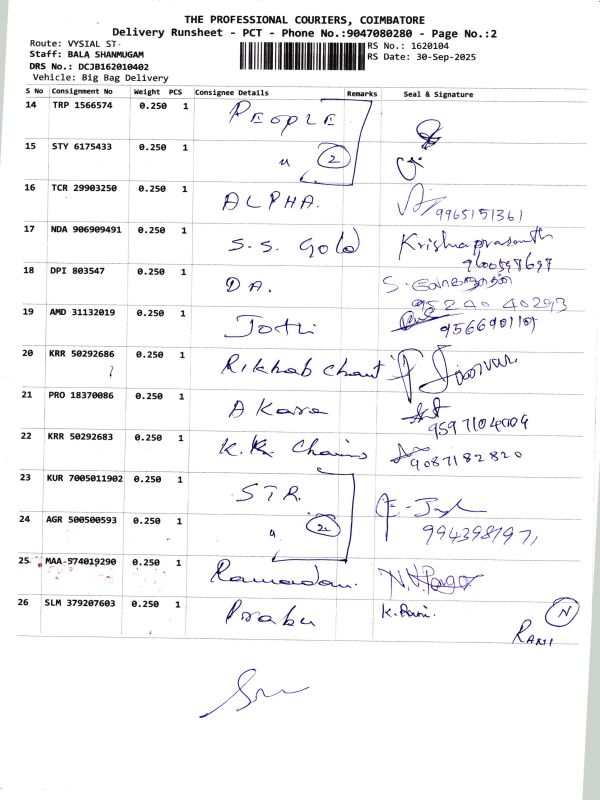 THE PROFESSIONAL COURIERS, COIMBATORE
Delivery Runsheet - PCT - Phone No.:9047080280 - Page No.:2
Route: VYSIAL ST
RS No.: 1620104
Staff: BALA SHANMUGAM
RS Date: 30-Sep-2025
DRS No.: DCJB162010402
Vehicle: Big Bag Delivery
S No Consignment No Weight PCS Consignee Details Remarks Seal & Signature
14 TRP 1566574 0.250 1 PEOPLE
15 STY 6175433 0.250 1 " 2
16 TCR 29903250 0.250 1 ALPHA. 9965151361
17 NDA 906909491 0.250 1 S.S. Gold Krishnaprasanth
9600597697
18 DPI 803547 0.250 1 D A. S.
95240 40293
19 AMD 31132019 0.250 1 Jothi
9566901101
20 KRR 50292686 0.250 1 Rikhab Chant
21 PRO 18370086 0.250 1 A Kara
9597104004
22 KRR 50292683 0.250 1 K.K. Chains 9087182820
23 KUR 7005011902 0.250 1 STR.
24 AGR 500500593 0.250 1 " 2 994398197
25 MAA 574019290 0.250 1 Ramadan.
26 SLM 379207603 0.250 1 Prabu K. Rani. N
RANI